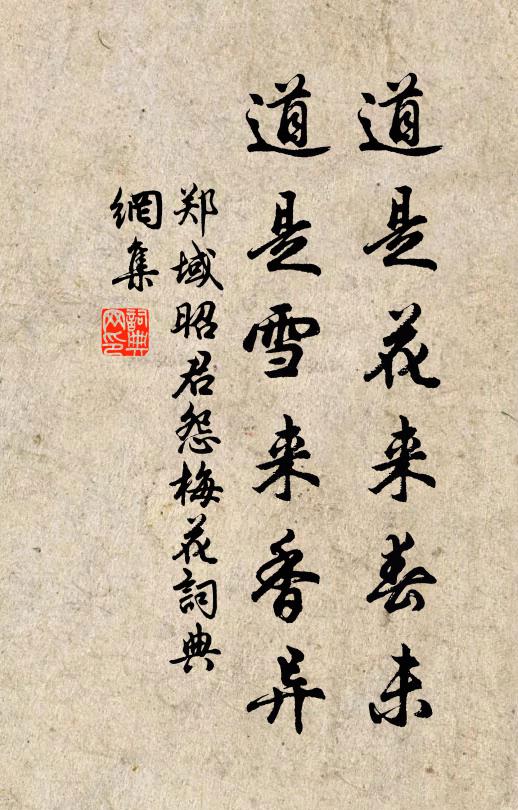 道是花来春未
道是雪来香异
郑域昭君怨梅花詞典
網集
詞典
网印